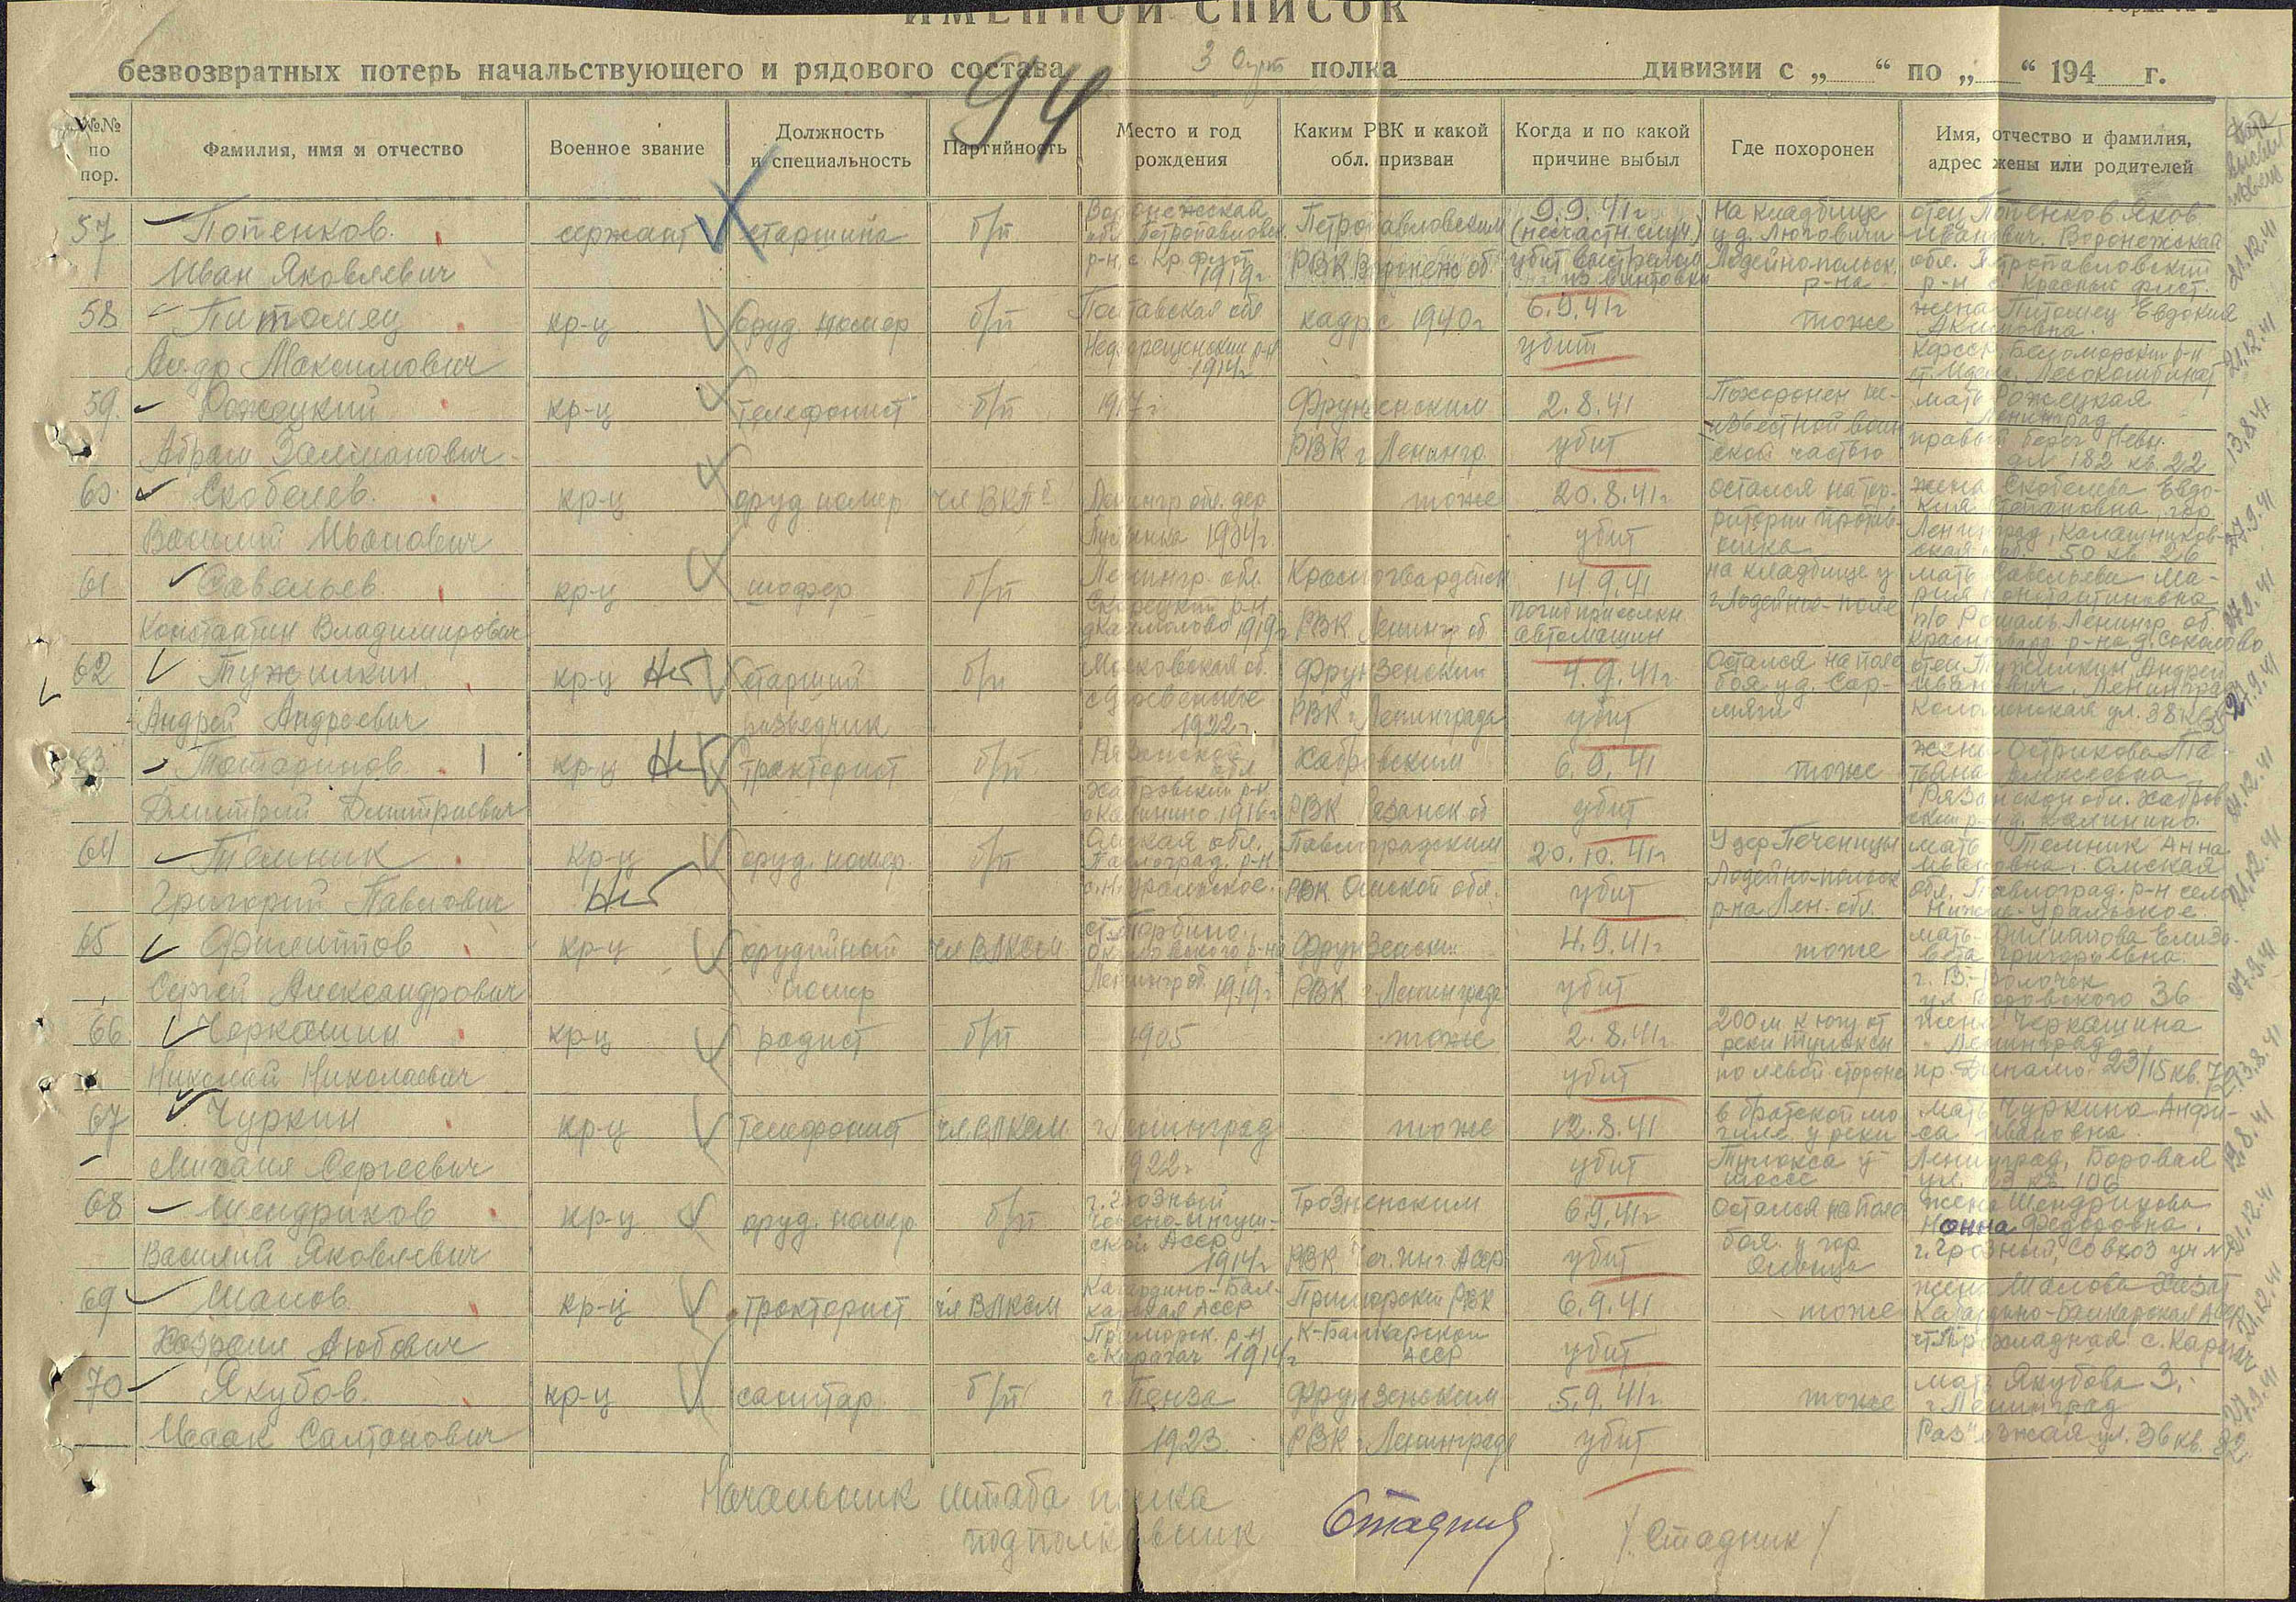 ИМЕННОЙ СПИСОК
безвозвратных потерь начальствующего и рядового состава 3 полка дивизии с „ “ по „ “ 194 г.
94
№№ по пор.
Фамилия, имя и отчество
Военное звание
Должность и специальность
Партийность
Место и год рождения
Каким РВК и какой обл. призван
Когда и по какой причине выбыл
Где похоронен
Имя, отчество и фамилия, адрес жены или родителей
57 Попенков Иван Яковлевич
сержант
старшина
б/п
Воронежская обл. Петропавловск. р-н, с. Кр. 1919г
Петропавловским РВК Воронеж об.
9.9.41г (несчастн. случ.) убит выстрелом из винтовки
На кладбище у д. Люговичи Лодейнопольск. р-на
отец Попенков Яков Иванович. Воронежская обл. Петропавловский р-н с. Красный
21.12.41
58 Питомец Ал-др Максимович
кр-ц
оруд. номер
б/п
Полтавская обл. р-н 1914г
кадр с 1940г
6.9.41г убит
тоже
жена Питомец Евдокия Акимовна. КФССР, Беломорский р-н Лесокомбинат
21.12.41
59. Рожецкий Абрам Залманович
кр-ц
телефонист
б/п
1917г
Фрунзенским РВК г. Ленингр.
2.8.41 убит
Похоронен неизвестной воинской частью
мать Рожецкая Ленинград правый берег Невы дом 182 кв. 22
13.8.41
60. Скобелев Василий Иванович
кр-ц
оруд номер
чл ВКПб
Ленингр обл. дер.
тоже
20.8.41г убит
остался на территории противника
жена Скобелева Евдокия Степановна, гор Ленинград, Калашниковская наб. 50 кв 26
27.9.41
61 Савельев Константин Владимирович
кр-ц
шофер
б/п
Ленингр. обл. р-н 1919г
Красногвардейск РВК Ленингр об.
14.9.41 Погиб при столкн. автомашин
на кладбище у г. Лодейное-поле
мать Савельева Мария Константиновна п/о Рошаль Ленингр. об. Красногвард. р-на д. Соколово
27.9.41
62 Тужилкин Андрей Андреевич
кр-ц Нет
Старший разведчик
б/п
Московская об. 1922г.
Фрунзенский РВК г. Ленинграда
4.9.41г убит
Остался на поле боя у д. Сармяги
отец Тужилкин Андрей Иванович. Ленинград Коломенская ул. 38 кв
27.9.41
63. Дмитрий Дмитриевич
кр-ц Нет
тракторист
б/п
Рязанской обл. р-н Калинино 1916г
РВК Рязанск об
6.9.41 убит
тоже
жена Острикова Татьяна Алексеевна Рязанской обл. р-н д. Калинино.
21.12.41
64 Темник Григорий Павлович
кр-ц Нет
оруд. номер
б/п
Омская обл. Павлоград. р-н Уральское.
Павлоградским РВК Омской обл.
20.10.41г убит
У дер Печеницы Лодейно-польск р-на Лен. обл.
мать Темник Анна Ивановна. Омская обл. Павлоград. р-н село Нижне-Уральское.
21.12.41
65 Филиппов Сергей Александрович
кр-ц
орудийный номер
чл ВЛКСМ
ст. Торбино Окуловского р-на Ленингр об. 1919г
Фрунзенским РВК г. Ленинграда
4.9.41г убит
тоже
мать Филиппова Елизавета Григорьевна. г. В.-Волочек ул. Воровского 36
27.9.41
66 Черкашин Николай Николаевич
кр-ц
радист
б/п
1905
тоже
2.8.41г убит
200м к югу от реки Тулоксы по левой стороне
жена Черкашина Ленинград пр. Динамо 23/15 кв. 7
13.8.41
67 Чуркин Михаил Сергеевич
кр-ц
Телефонист
чл. ВЛКСМ
г. Ленинград 1922г
тоже
12.8.41 убит
в братской могиле у реки Тулокса у шоссе
мать Чуркина Анфиса Ивановна. Ленинград, Боровая ул. кв. 106
19.8.41
68 Шендриков Василий Яковлевич
кр-ц
оруд. номер
б/п
г. Грозный Чечено-Ингушской АССР 1914г
Грозненским РВК Чеч. Инг. АССР
6.9.41г убит
Остался на поле боя у гор. Олонца
жена Шендрикова Нонна Федоровна. г. Грозный, совхоз уч №
21.12.41
69 Шалов Аюбович
кр-ц
тракторист
чл ВЛКСМ
Кабардино-Балкарская АССР Приморск. р-н с Карагач 1914г
Приморский РВК К-Балкарской АССР
6.9.41 убит
тоже
жена Шалова Кабардино-Балкарская АССР ст. Прохладная с. Карагач
21.12.41
70 Якубов Исаак Салтанович
кр-ц
санитар
б/п
г Пенза 1923
Фрунзенским РВК г. Ленинграда
5.9.41г убит
тоже
мать Якубова З. г. Ленинград Раз'езжая ул. 36 кв.
27.9.41
Начальник штаба полка
подполковник Стадник /Стадник/